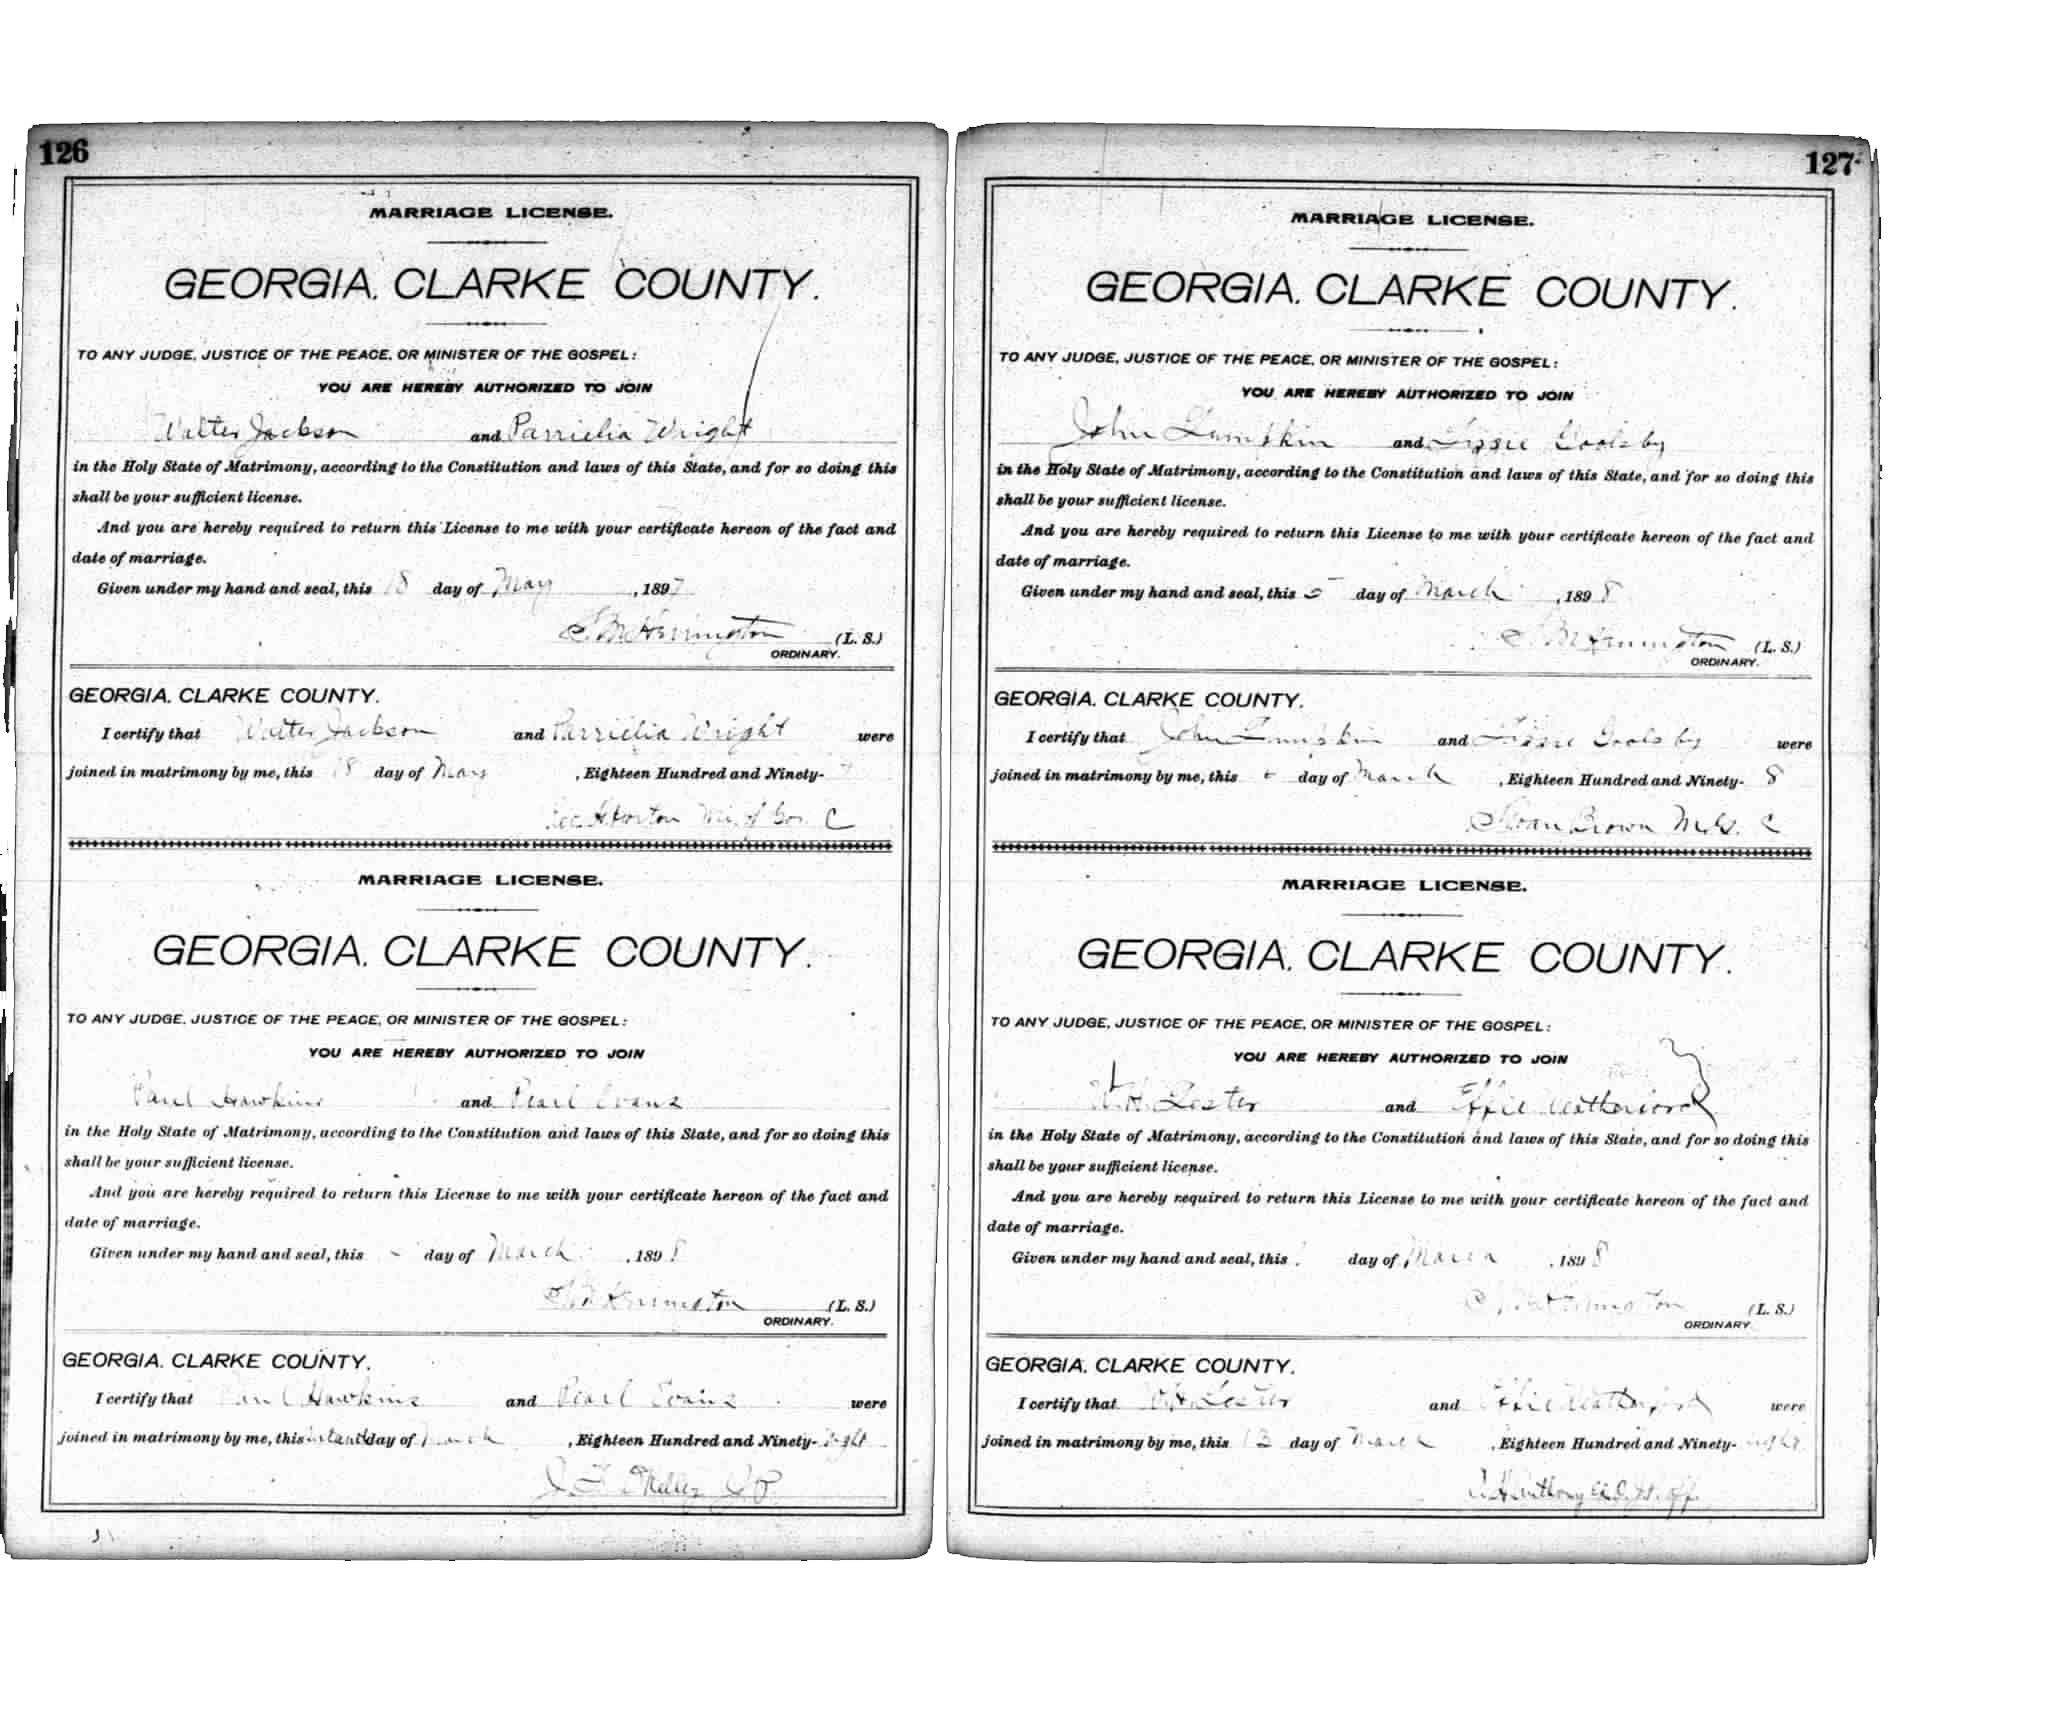 126
MARRIAGE LICENSE.
GEORGIA. CLARKE COUNTY.
TO ANY JUDGE, JUSTICE OF THE PEACE, OR MINISTER OF THE GOSPEL:
YOU ARE HEREBY AUTHORIZED TO JOIN
Walter Jackson and Parrielia Wright
in the Holy State of Matrimony, according to the Constitution and laws of this State, and for so doing this
shall be your sufficient license.
And you are hereby required to return this License to me with your certificate hereon of the fact and
date of marriage.
Given under my hand and seal, this 18 day of May, 1897
S. M. Herrington (L. S.)
ORDINARY.
GEORGIA. CLARKE COUNTY.
I certify that Walter Jackson and Parrielia Wright were
joined in matrimony by me, this 18 day of May, Eighteen Hundred and Ninety- 7
Horton C
MARRIAGE LICENSE.
GEORGIA. CLARKE COUNTY.
TO ANY JUDGE, JUSTICE OF THE PEACE, OR MINISTER OF THE GOSPEL:
YOU ARE HEREBY AUTHORIZED TO JOIN
Paul Hawkins and Pearl Evans
in the Holy State of Matrimony, according to the Constitution and laws of this State, and for so doing this
shall be your sufficient license.
And you are hereby required to return this License to me with your certificate hereon of the fact and
date of marriage.
Given under my hand and seal, this day of March, 1898
S. M. Herrington (L. S.)
ORDINARY.
GEORGIA. CLARKE COUNTY.
I certify that Paul Hawkins and Pearl Evans were
joined in matrimony by me, this day of March, Eighteen Hundred and Ninety- Eight
127
MARRIAGE LICENSE.
GEORGIA. CLARKE COUNTY.
TO ANY JUDGE, JUSTICE OF THE PEACE, OR MINISTER OF THE GOSPEL:
YOU ARE HEREBY AUTHORIZED TO JOIN
John Lumpkin and Lizzie Goolsby
in the Holy State of Matrimony, according to the Constitution and laws of this State, and for so doing this
shall be your sufficient license.
And you are hereby required to return this License to me with your certificate hereon of the fact and
date of marriage.
Given under my hand and seal, this 5 day of March, 1898
S. M. Herrington (L. S.)
ORDINARY.
GEORGIA. CLARKE COUNTY.
I certify that John Lumpkin and Lizzie Goolsby were
joined in matrimony by me, this day of March, Eighteen Hundred and Ninety- 8
Brown M. G. C
MARRIAGE LICENSE.
GEORGIA. CLARKE COUNTY.
TO ANY JUDGE, JUSTICE OF THE PEACE, OR MINISTER OF THE GOSPEL:
YOU ARE HEREBY AUTHORIZED TO JOIN
W. H. Lester and Effie Weatherford
in the Holy State of Matrimony, according to the Constitution and laws of this State, and for so doing this
shall be your sufficient license.
And you are hereby required to return this License to me with your certificate hereon of the fact and
date of marriage.
Given under my hand and seal, this day of March, 1898
S. M. Herrington (L. S.)
ORDINARY.
GEORGIA. CLARKE COUNTY.
I certify that W. H. Lester and Effie Weatherford were
joined in matrimony by me, this 13 day of March, Eighteen Hundred and Ninety- eight
Anthony